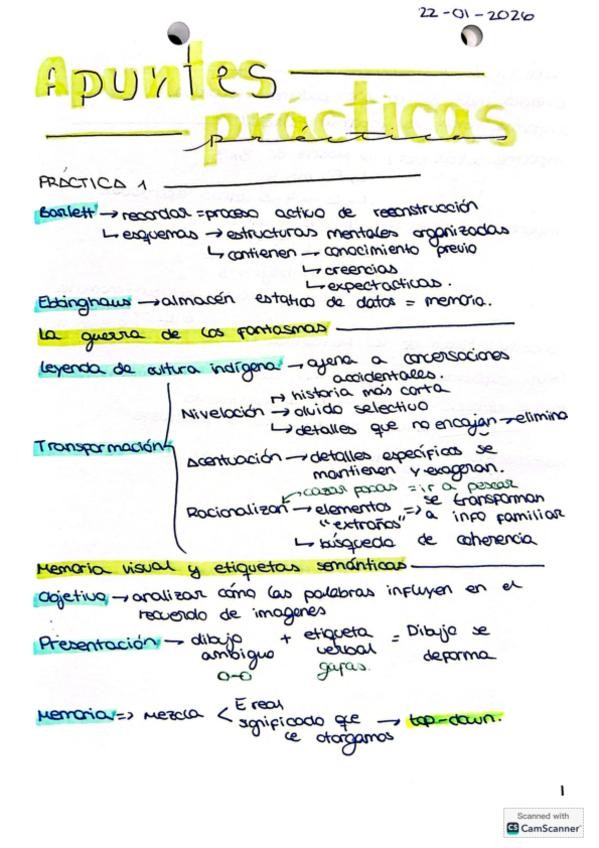 22-01-2026
Apuntes
prácticas
prácticas
PRÁCTICA 1
Barlett → recordar = proceso activo de reconstrucción
↳ esquemas → estructuras mentales organizadas
↳ contienen → conocimiento previo
↳ creencias
↳ expectacticas.
Ebbinghaus → almacén estatico de datos = memoria.
La guerra de los fantasmas
Leyenda de cultura indígena → ajena a concersaciones
accidentales.
Transformación
Nivelación ↦ historia más corta
→ olvido selectivo
↳ detalles que no encajan → elimina
Acentuación → detalles específicos se
mantienen y exageran.
cazar focas = ir a pescar
Racionalizan → elementos "extraños" => se transforman a info familiar
↳ búsqueda de coherencia
Memoria visual y etiquetas semánticas
Objetivo → analizar cómo las palabras influyen en el
recuerdo de imagenes
Presentación → dibujo ambiguo + etiqueta verbal = Dibujo se deforma
o-o gafas.
Memoria => Mezcla < E real
significado que le otorgamos → top-down.
1
Scanned with
CS CamScanner